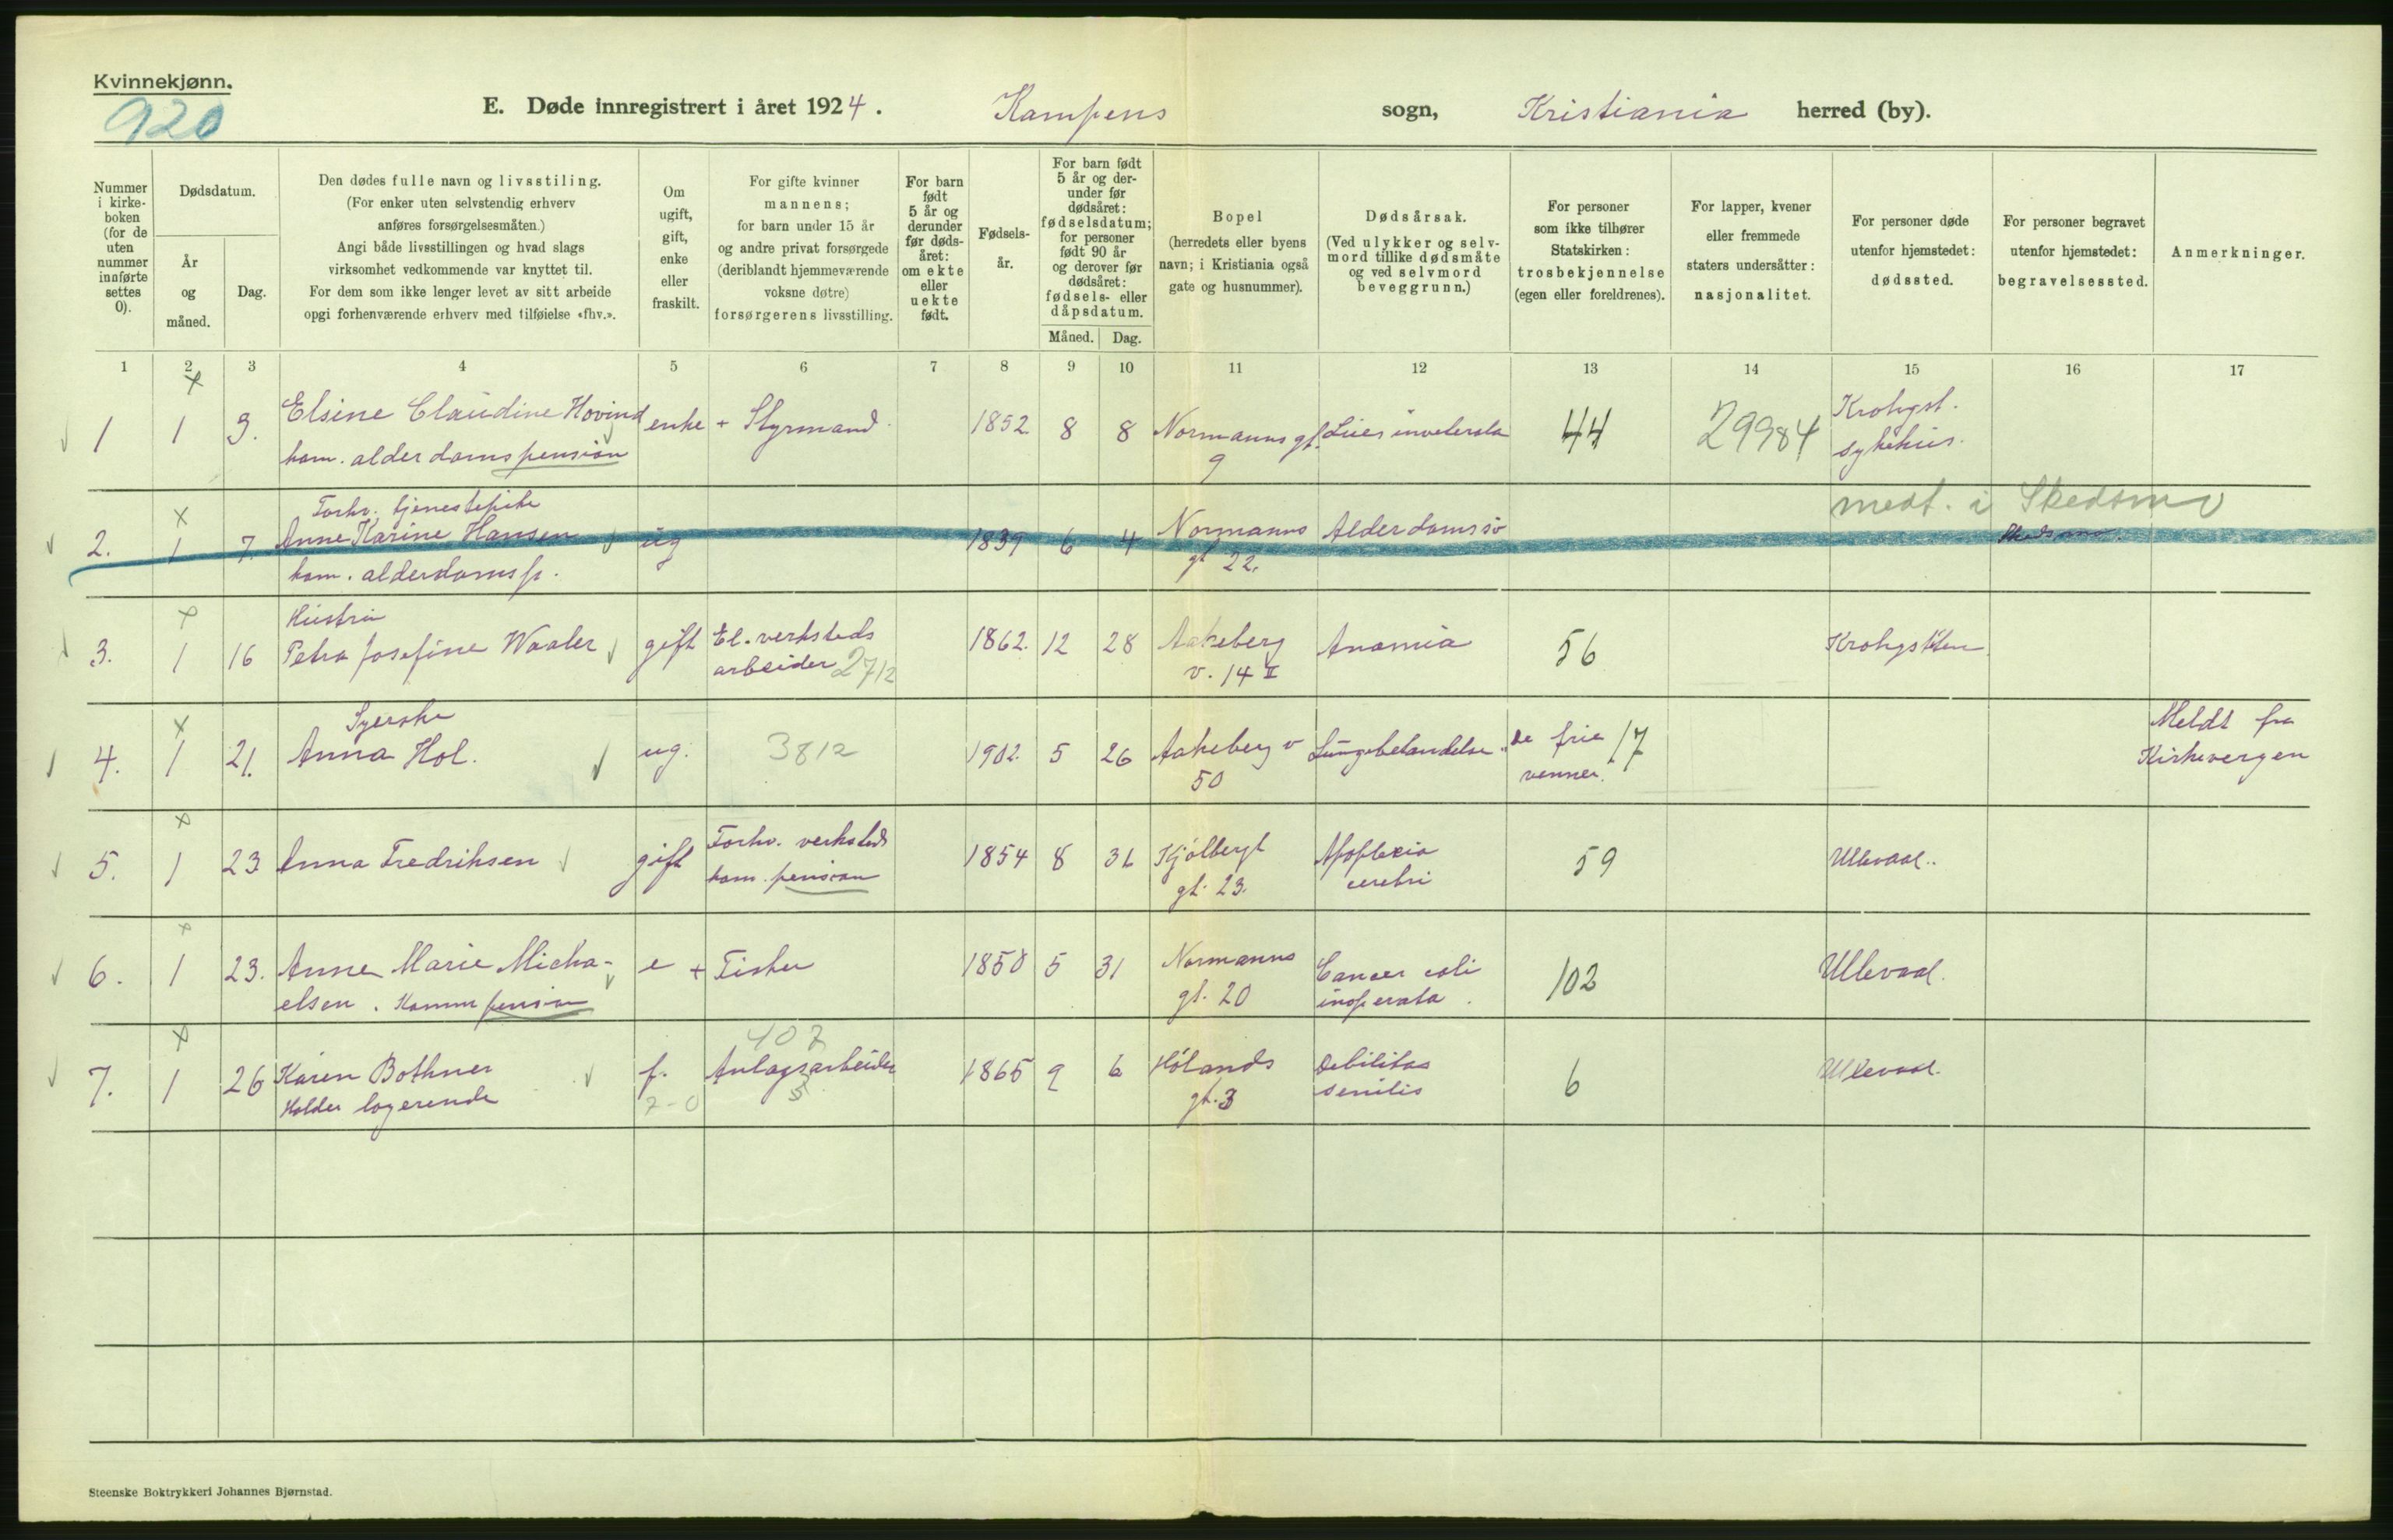 Kvinnekjønn.
920
E. Døde innregistrert i året 1924. Kampens sogn, Kristiania herred (by).
Nummer i kirke-boken (for de uten nummer innførte settes 0).
Dødsdatum.
År og måned.
Dag.
Den dødes fulle navn og livsstiling.
(For enker uten selvstendig erhverv
anføres forsørgelsesmåten.)
Angi både livsstillingen og hvad slags
virksomhet vedkommende var knyttet til.
For dem som ikke lenger levet av sitt arbeide
opgi forhenværende erhverv med tilføielse «fhv.».
Om ugift, gift, enke eller fraskilt.
For gifte kvinner
mannens;
for barn under 15 år
og andre privat forsørgede
(deriblandt hjemmeværende
voksne døtre)
forsørgerens livsstilling.
For barn født 5 år og derunder før døds-året: om ekte eller uekte født.
Fødsels-år.
For barn født 5 år og der-under før dødsåret: fødselsdatum; for personer født 90 år og derover før dødsåret: fødsels- eller dåpsdatum.
Måned.
Dag.
Bopel
(herredets eller byens
navn; i Kristiania også
gate og husnummer).
Dødsårsak.
(Ved ulykker og selv-
mord tillike dødsmåte
og ved selvmord
beveggrunn.)
For personer
som ikke tilhører
Statskirken:
trosbekjennelse
(egen eller foreldrenes).
For lapper, kvener
eller fremmede
staters undersåtter:
nasjonalitet.
For personer døde
utenfor hjemstedet:
dødssted.
For personer begravet
utenfor hjemstedet:
begravelsessted.
Anmerkninger.
1 2 3 4 5 6 7 8 9 10 11 12 13 14 15 16 17
x
1 1 9. Elsine Claudine Hovind enke + Styrmand 1852 8 8 Normanns gt. Lues inveterata 44 29984 Krohgst.
kom. alderdomspension 9 sykehus.
x Forhv. tjenestepike medt. i Skedsmo
2. 1 7. Anne Karine Hansen ug 1839 6 4 Normanns Alderdomssv Skedsmo.
kom. alderdomsp. gt 22.
x Hustru
3. 1 16 Petra Josefine Waaler gift El. verksteds 1862. 12 28 Aakeberg Anæmia 56 Krohgstøten
arbeider 2712 v. 14 II
x Syerske Meldt fra
4. 1 21. Anna Hol. ug. 3812 1902. 5 26 Aakeberg v Lungebetændelse "De frie 17 Kirkevergen
50 venner.
x
5. 1 23 Anna Fredriksen gift Forhv. verksteds 1854 8 31 Kjølbergt Apoplexia 59 Ullevaal.
kom. pension gt. 23. cerebri
x
6. 1 23. Anne Marie Micha- e + Fisker 1850 5 31 Normanns Cancer coli 102 Ullevaal.
elsen. Komm pension gt. 20 inoperata.
x 407
7. 1 26 Karen Bothner f. Anlagsarbeider 1865 9 6 Hølands Debilitas 6 Ullevaal.
Holder logerende 2-0 5 gt. 3 senilis
Steenske Boktrykkeri Johannes Bjørnstad.